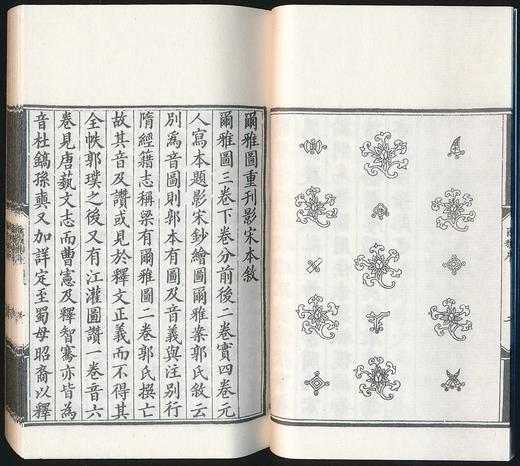 爾雅圖重刊影宋本敘
爾雅圖三卷下卷分前後二卷實四卷元
人寫本題影宋鈔繪圖爾雅案郭氏敘云
別爲音圖則郭本有圖及音義與注別行
隋經籍志稱梁有爾雅圖二卷郭氏撰亡
故其音及讚或見於釋文正義而不得其
全帙郭璞之後又有江灌圖讚一卷音六
卷見唐藝文志而曹憲及釋智騫亦皆爲
音杜鎬孫奭又加詳定至蜀毋昭裔以釋